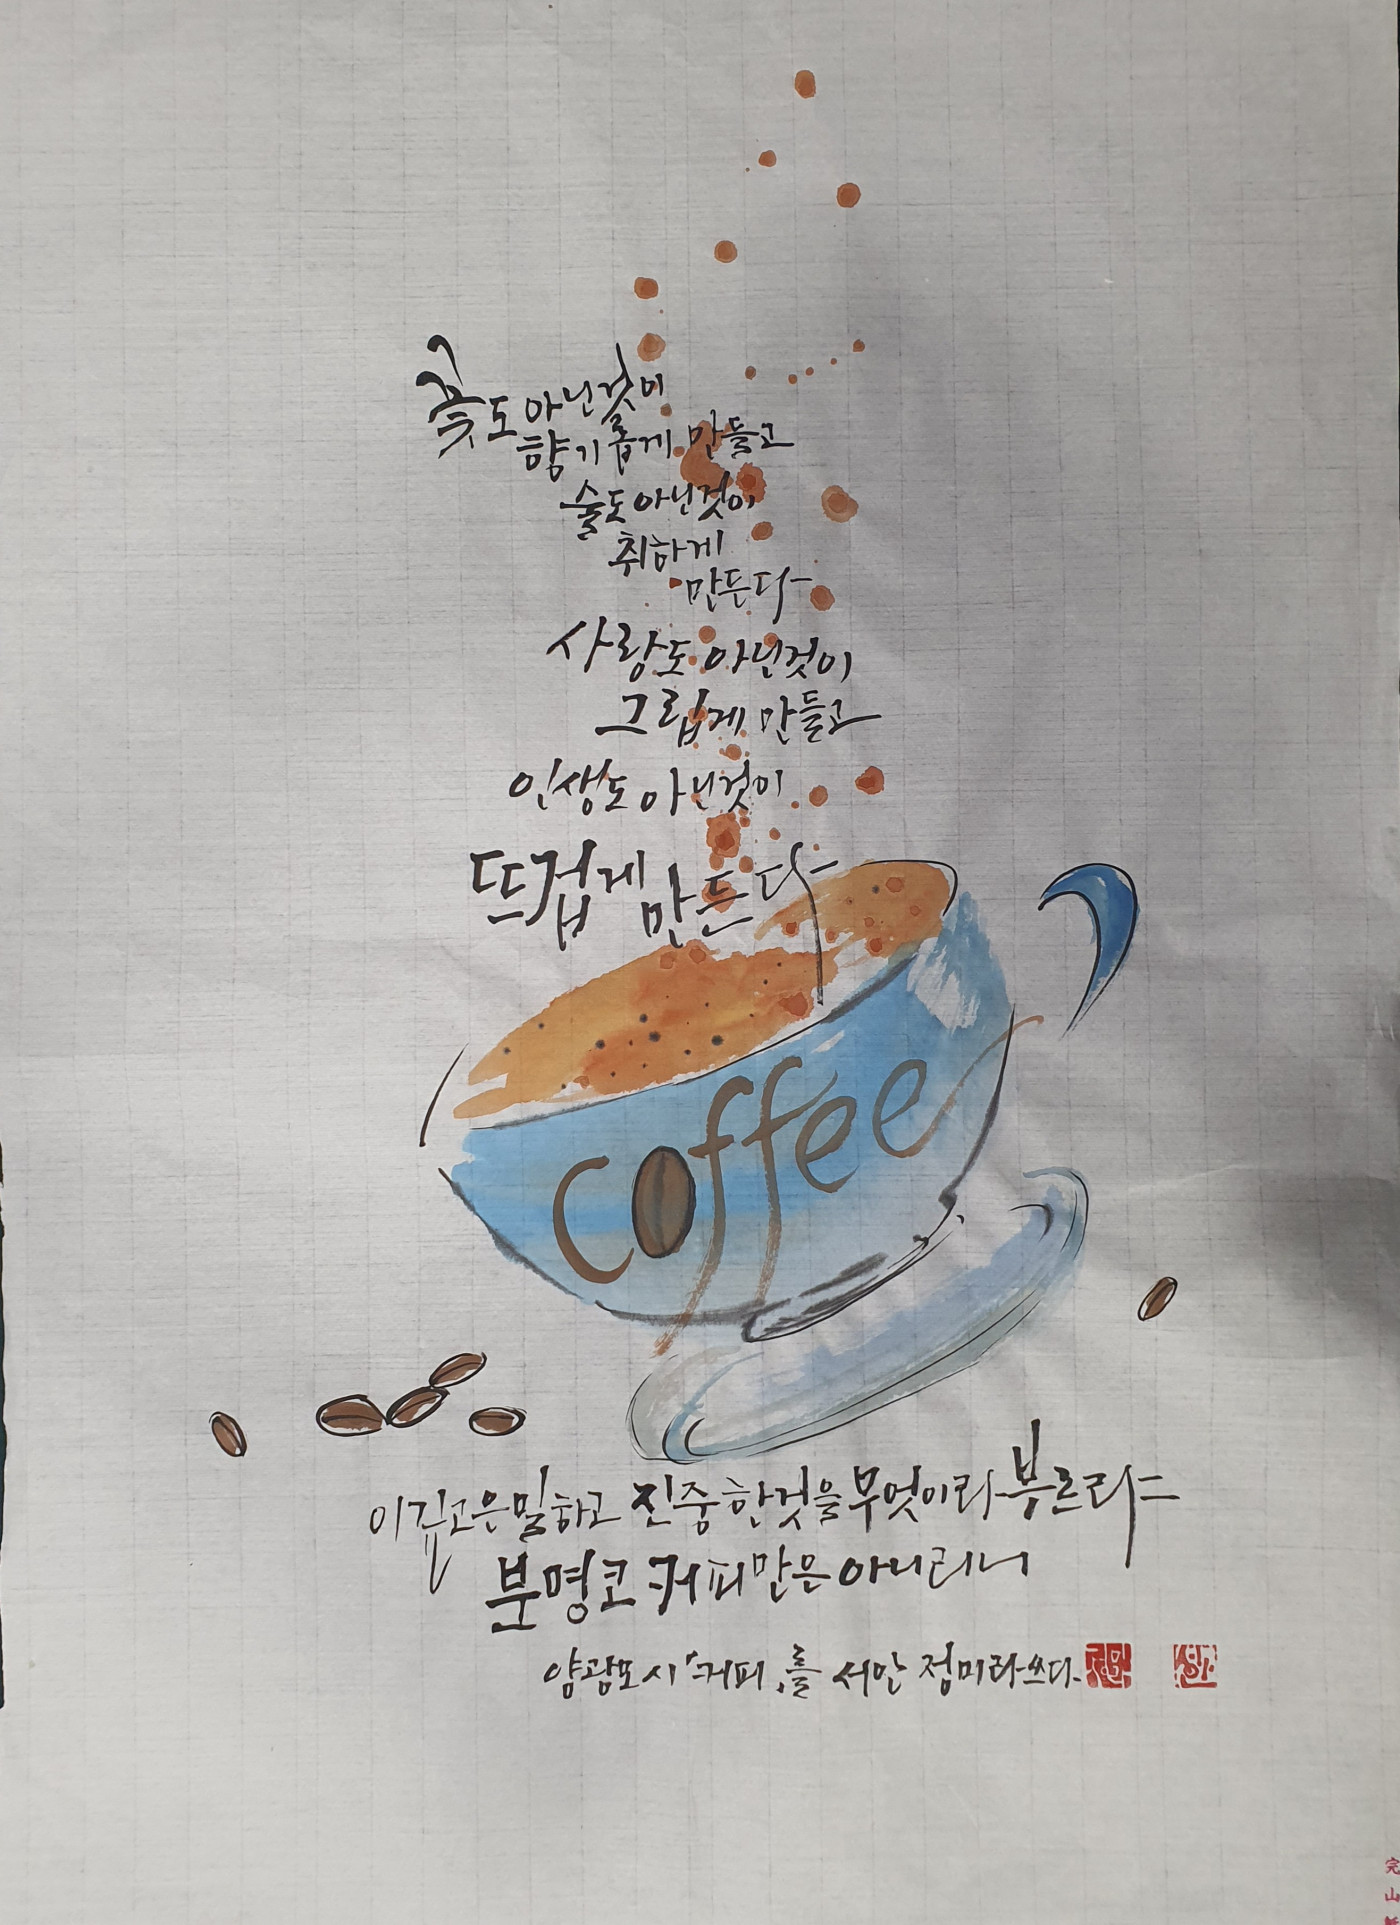 꽃도 아닌것이
향기롭게 만들고
술도 아닌것이
취하게
만든다
사랑도 아닌것이
그립게 만들고
인생도 아닌것이
뜨겁게 만든다
coffee
이 깊고 은밀하고 진중한것을 무엇이라 부르랴
분명코 커피만은 아니리니
양광모 시 '커피'를 서안 정미라 쓰다.
完
山